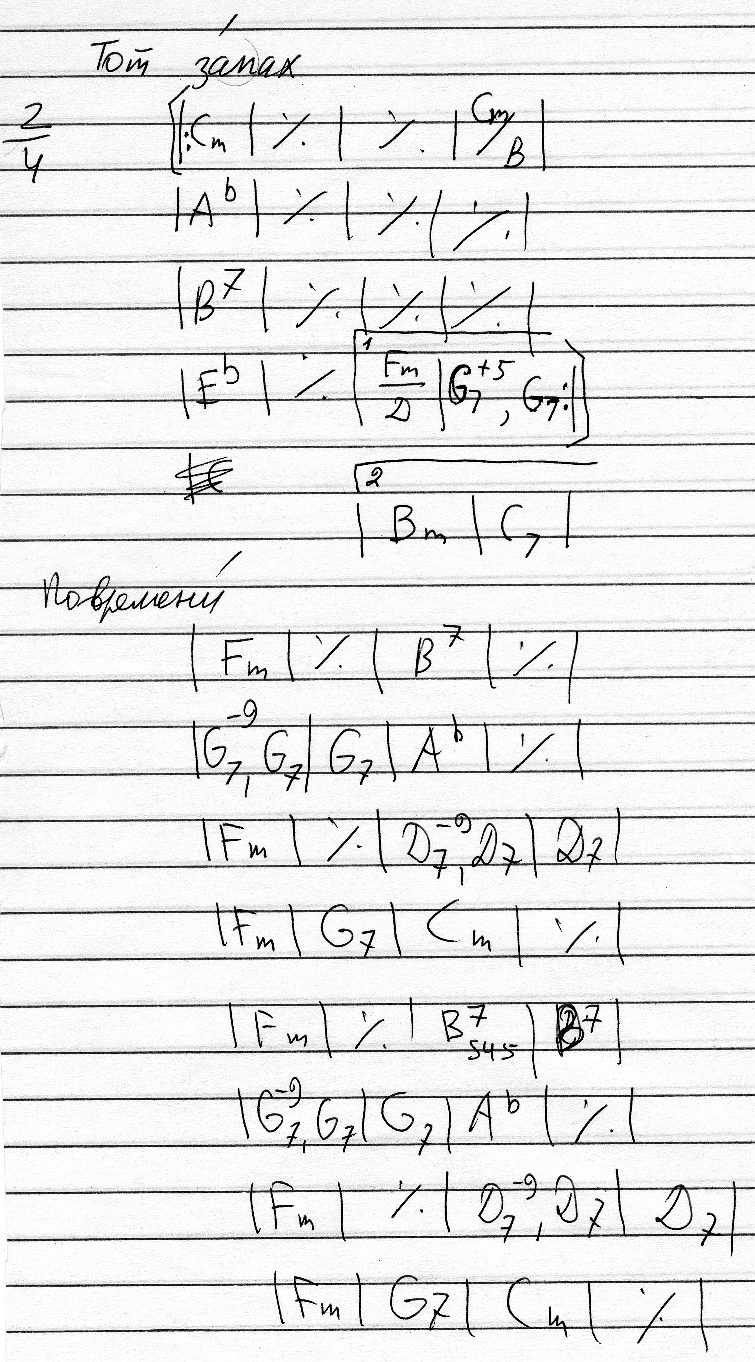 Тот запах
2/4
|: Cm | ٪ | ٪ | Cm/B |
| Ab | ٪ | ٪ | ٪ |
| B7 | ٪ | ٪ | ٪ |
| Eb | ٪ | 1 Fm/D | G7+5, G7 :|
2
| Bm | C7 |
По времени
| Fm | ٪ | B7 | ٪ |
| G7-9, G7 | G7 | Ab | ٪ |
| Fm | ٪ | D7-9, D7 | D7 |
| Fm | G7 | Cm | ٪ |
| Fm | ٪ | B7 545 | B7 |
| G7-9, G7 | G7 | Ab | ٪ |
| Fm | ٪ | D7-9, D7 | D7 |
| Fm | G7 | Cm | ٪ |